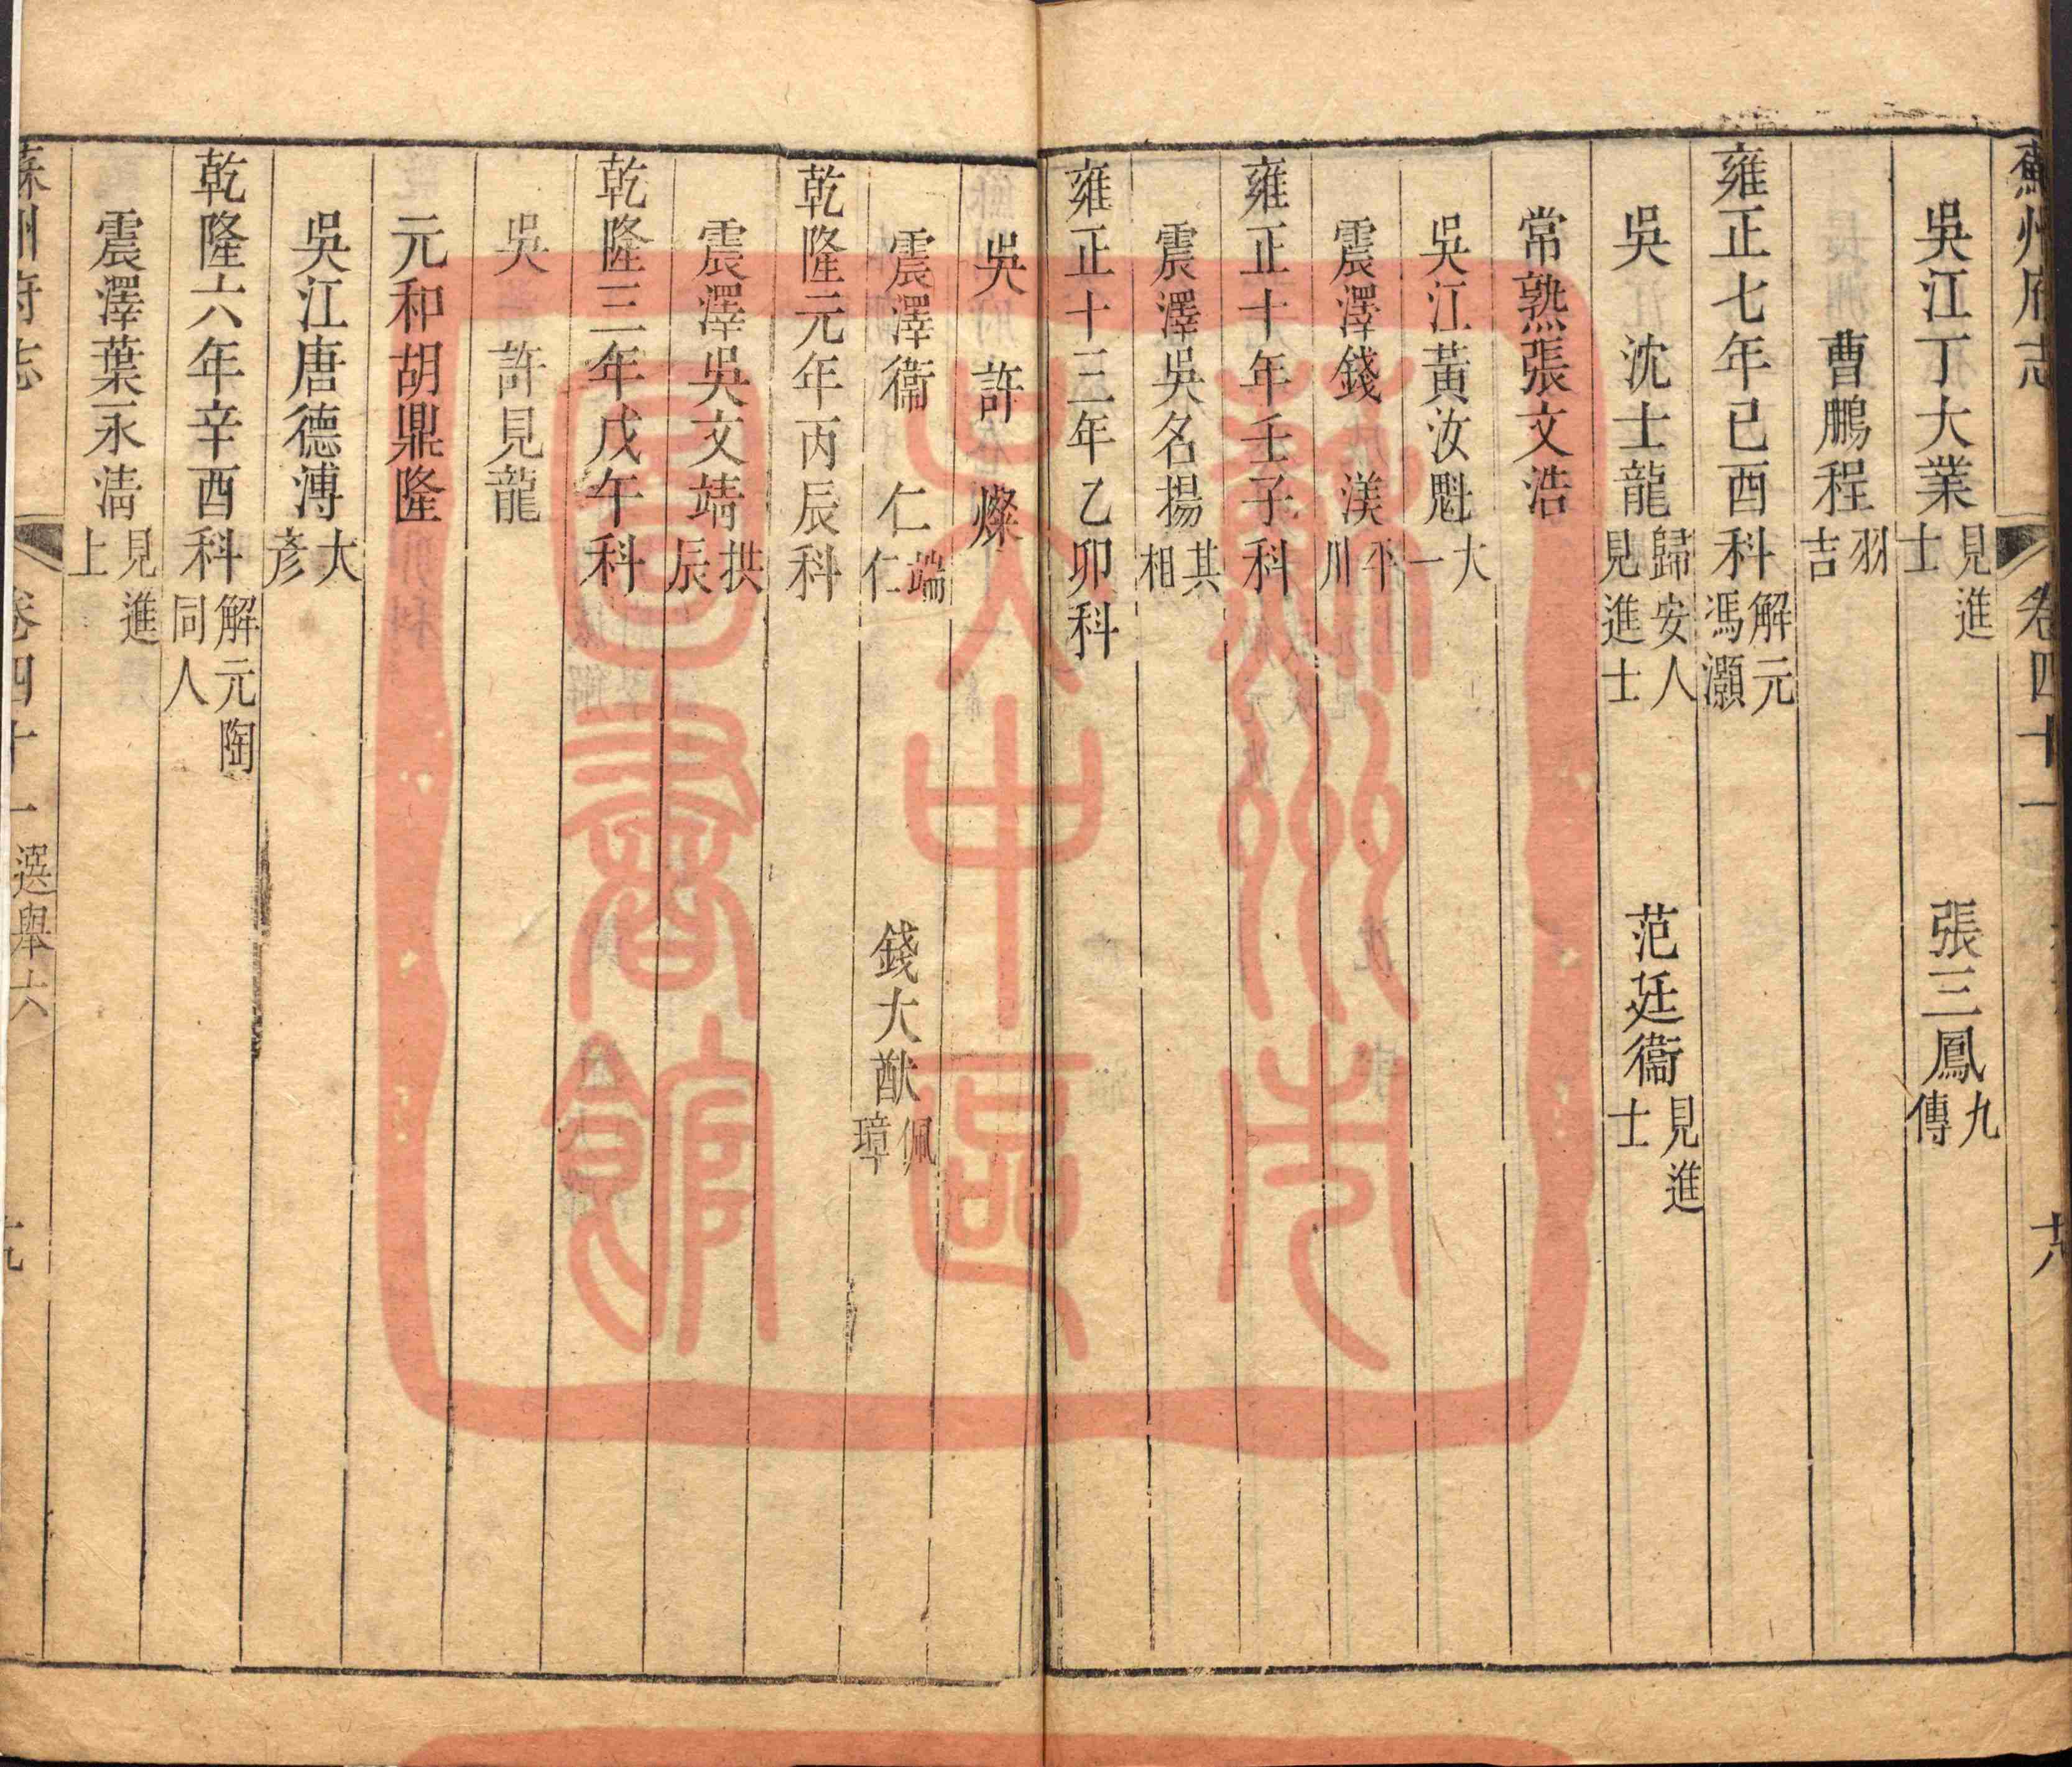 蘇州府志 卷四十一 六
吳江丁大業見進士 張三鳳九傳
曹鵬程羽吉
雍正七年己酉科解元馮灝
吳 沈士龍歸安人見進士 范廷𧗾見進士
常熟張文浩
吳江黃汝魁大一
震澤錢 渼平川
雍正十年壬子科
震澤吳名揚其相
雍正十三年乙卯科
吳 許 燦
震澤衞 仁端仁 錢大猷佩璋
乾隆元年丙辰科
震澤吳文靖拱辰
乾隆三年戊午科
吳 許見龍
元和胡鼎隆
吳江唐德溥大彥
乾隆六年辛酉科解元陶同人
震澤葉永清見進上
蘇州府志 卷四十一 選舉六 九
蘇州市
吳中區
圖書館